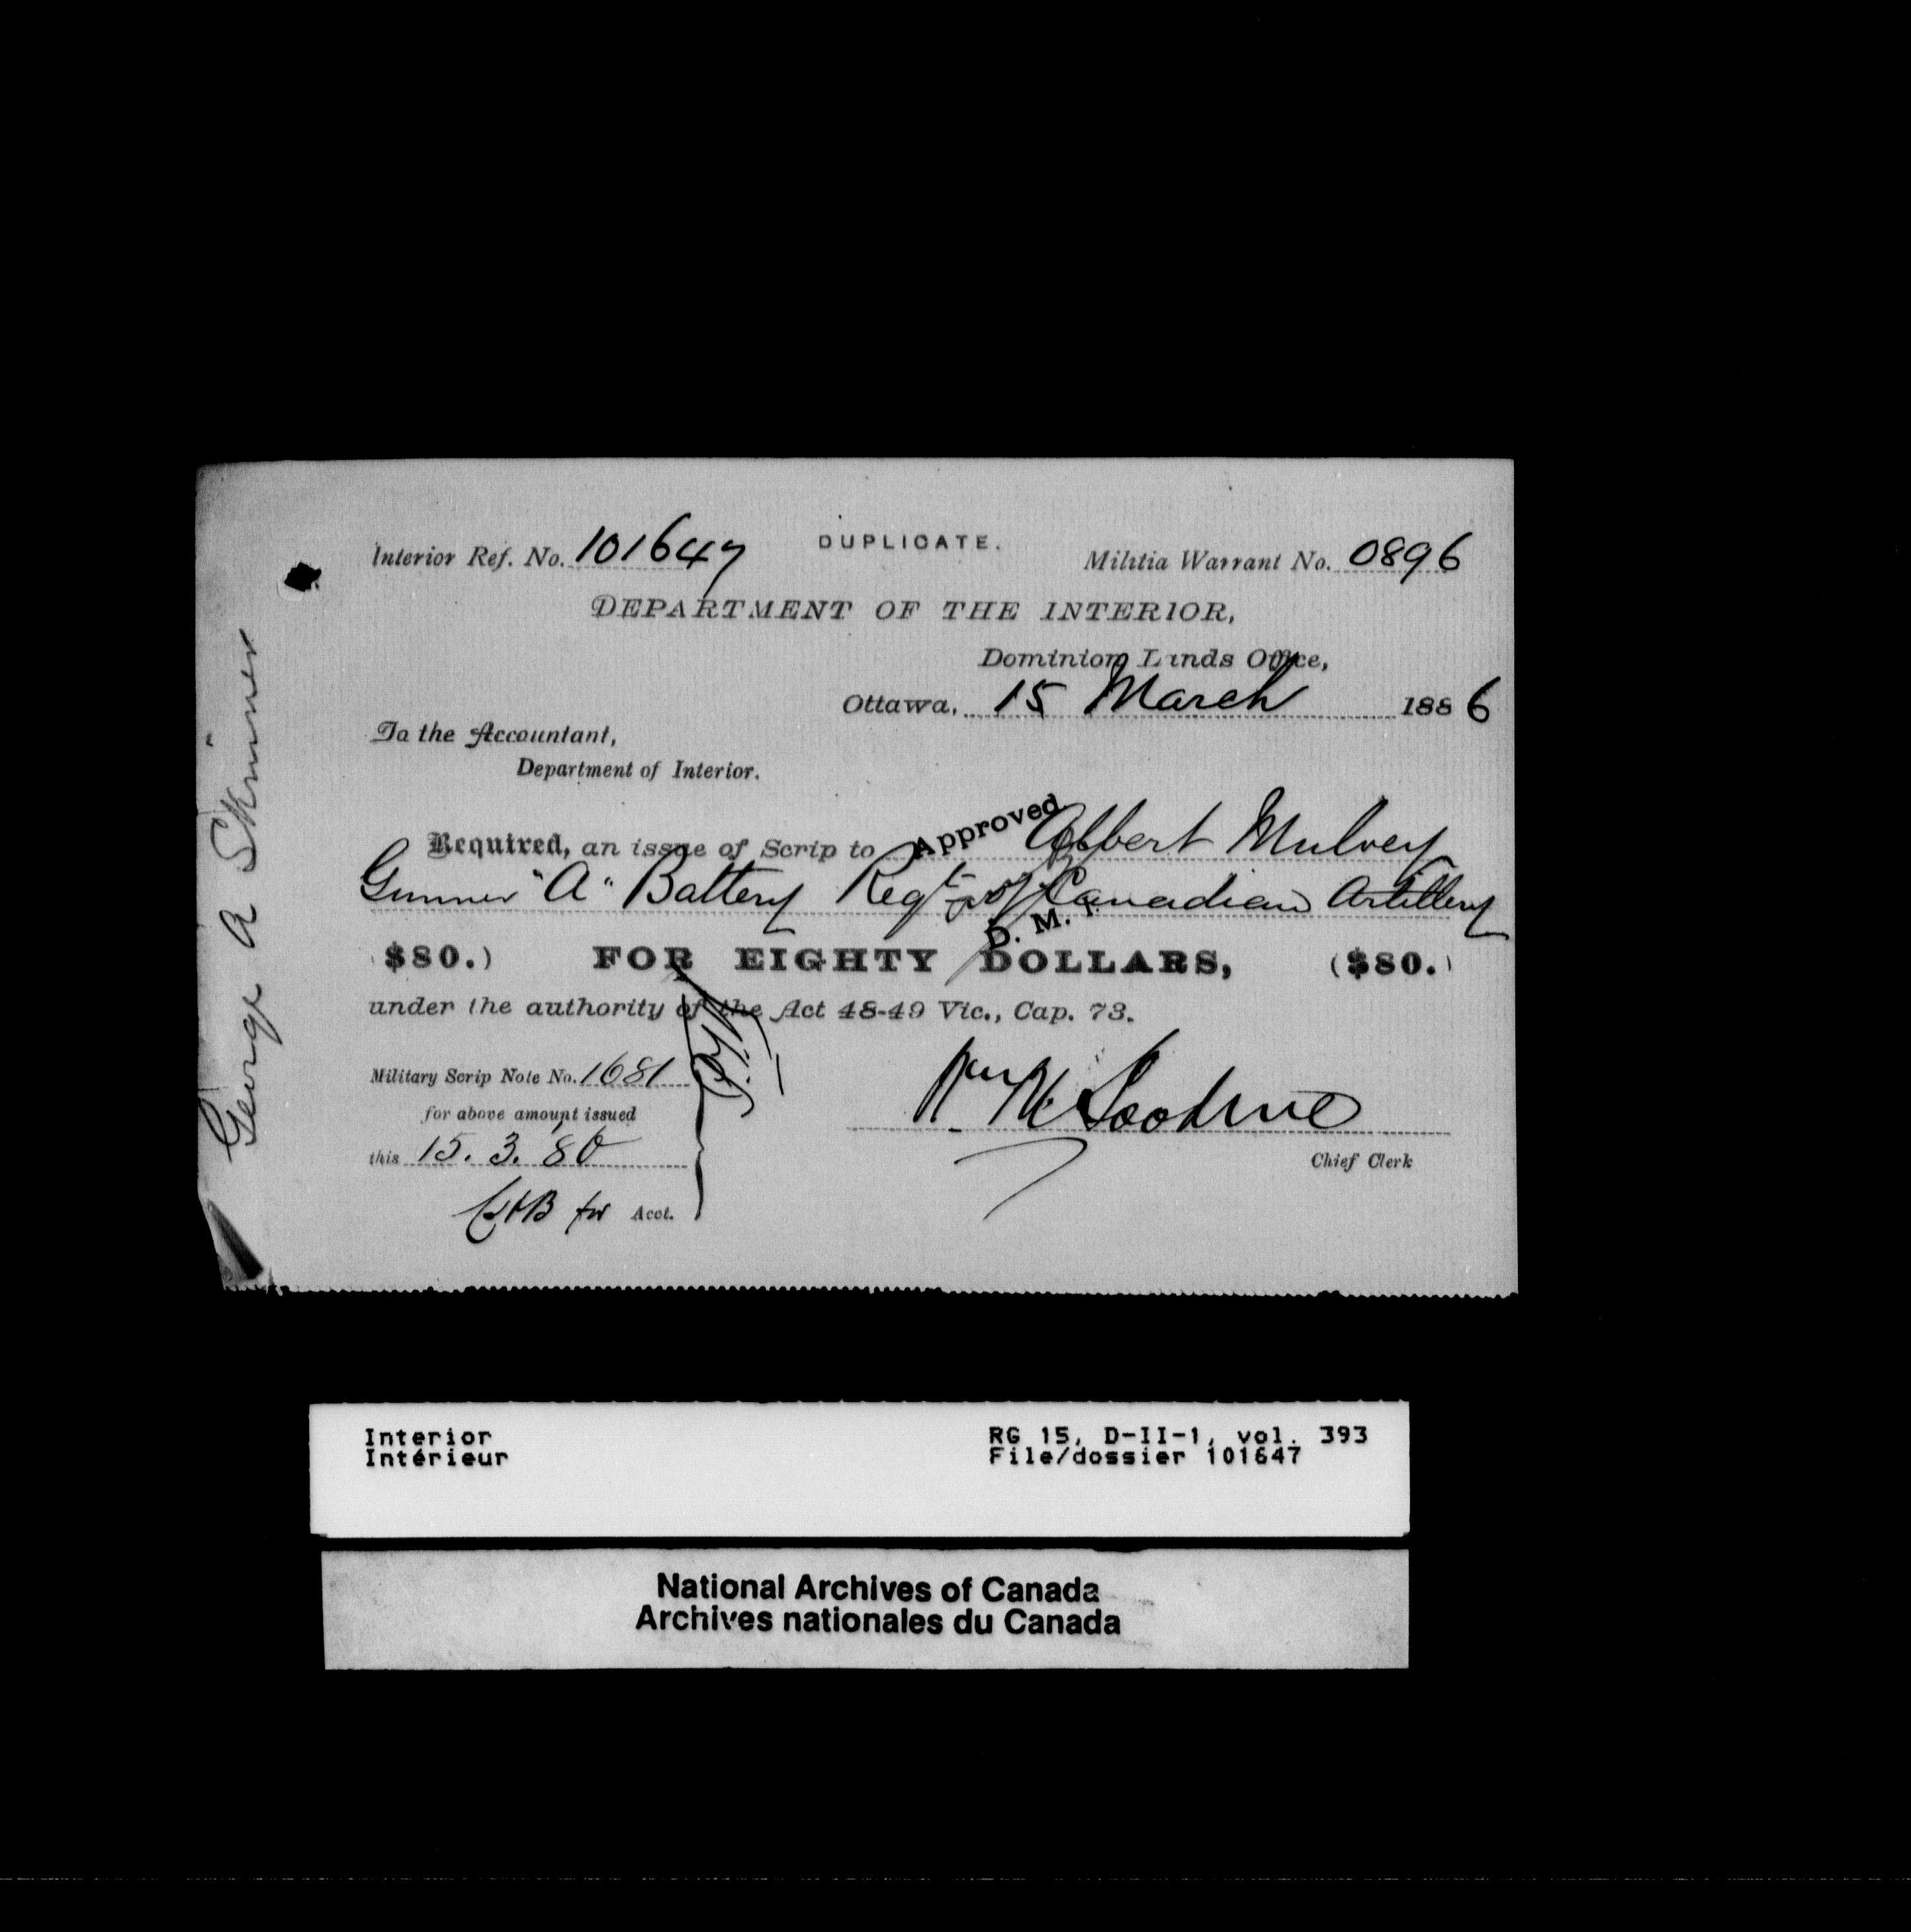 DUPLICATE.
Interior Ref. No. 101647
Militia Warrant No. 0896
DEPARTMENT OF THE INTERIOR,
Dominion Lands Office,
Ottawa, 15 March 1886
To the Accountant,
Department of Interior.
Approved
Required, an issue of Scrip to Albert Mulvey
Gunner "A" Battery Regt of Canadian Artillery
D. M. I.
$80.) FOR EIGHTY DOLLARS, ($80.)
under the authority of the Act 48-49 Vic., Cap. 73.
Military Scrip Note No. 1681
for above amount issued
this 15. 3. 86
for Acct.
Chief Clerk
George A Skinner
Interior
Intérieur
RG 15, D-II-1, vol. 393
File/dossier 101647
National Archives of Canada
Archives nationales du Canada